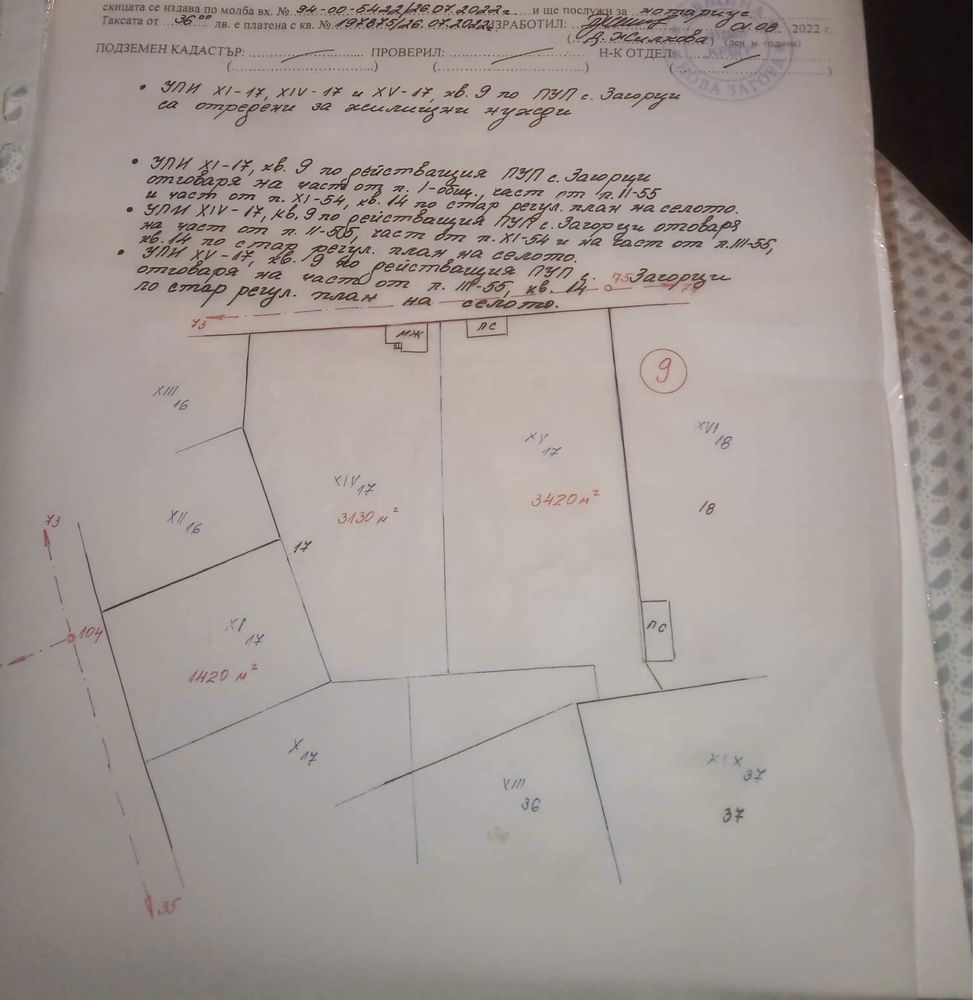 скицата се издава по молба вх. № 94-00-5422/26.07.2022г. и ще послужи за нотариус
Таксата от 36⁰⁰ лв. е платена с кв. № 197875/26.07.2022г. ИЗРАБОТИЛ: 01.08. 2022 г.
(Д. Жилкова) (ден м. година)
ПОДЗЕМЕН КАДАСТЪР: ПРОВЕРИЛ: Н-К ОТДЕЛ
(..........) (..........) (..........)
НОВА ЗАГОРА
• УПИ XI-17, XIV-17 и XV-17, кв. 9 по ПУП с. Загорци
са отредени за жилищни нужди
• УПИ XI-17, кв. 9 по действащия ПУП с. Загорци
отговаря на част от п. I-общ., част от п. II-55
и част от п. XI-54, кв. 14 по стар регул. план на селото.
• УПИ XIV-17, кв. 9 по действащия ПУП с. Загорци отговаря
на част от п. II-505, част от п. XI-54 и на част от п. III-55,
кв. 14 по стар регул. план на селото.
• УПИ XV-17, кв. 9 по действащия ПУП с. Загорци
отговаря на част от п. III-55, кв. 14
по стар регул. план на селото.
75
73
МЖ
ПС
9
XIII 16
XVI 18
XV 17
XIV 17
3420 м²
3130 м²
18
XII 16
73
17
104
XI 17
ПС
1420 м²
X 17
XIX 37
XIII 36
37
35